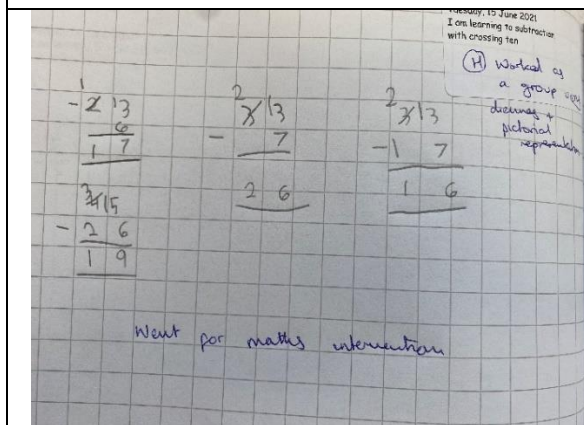 Tuesday, 15 June 2021
I am learning to subtraction
with crossing ten
(H) Worked as
a group
dienes +
pictorial
representation
1
- 2 13
6
1 7
2
3 13
- 7
2 6
2
3 13
- 1 7
1 6
3
4 15
- 2 6
1 9
Went for maths intervention